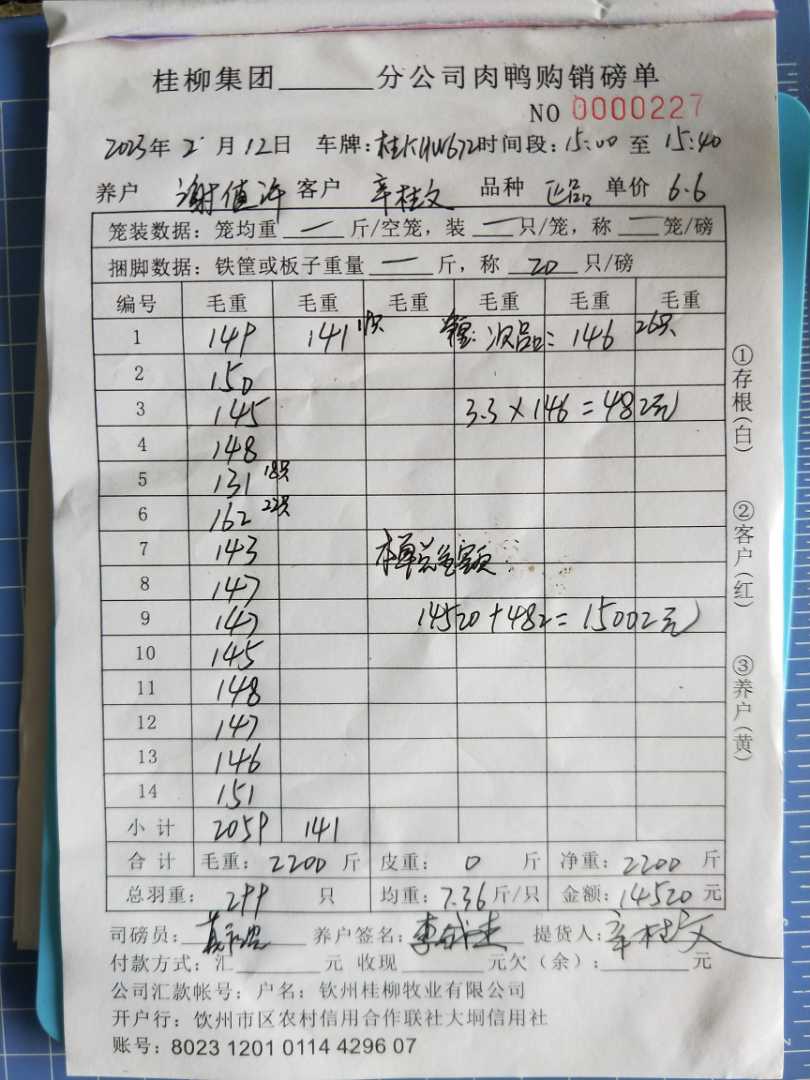 桂柳集团______分公司肉鸭购销磅单
NO 0000227
2023年2月12日 车牌:桂KHW672时间段:15:00至15:40
养户 谢值许 客户 辛桂文 品种 正品 单价 6.6
笼装数据:笼均重 一 斤/空笼,装 一 只/笼,称 一 笼/磅
捆脚数据:铁筐或板子重量 一 斤,称 20 只/磅
编号 毛重 毛重 毛重 毛重 毛重 毛重
1 149 141 19只 次品:146 26只
2 150
3 145 3.3×146=482元
4 148
5 131 18只
6 162 22只
7 143 本单总金额:
8 147
9 147 14520+482=15002元
10 145
11 148
12 147
13 146
14 151
小计 2059 141
合计 毛重:2200斤 皮重:0斤 净重:2200斤
总羽重:299只 均重:7.36斤/只 金额:14520元
司磅员: 养户签名:李成杰 提货人:辛桂文
付款方式:汇______元 收现______元欠(余):______元
公司汇款帐号:户名:钦州桂柳牧业有限公司
开户行:钦州市区农村信用合作联社大垌信用社
账号:8023 1201 0114 4296 07
①存根(白)
②客户(红)
③养户(黄)